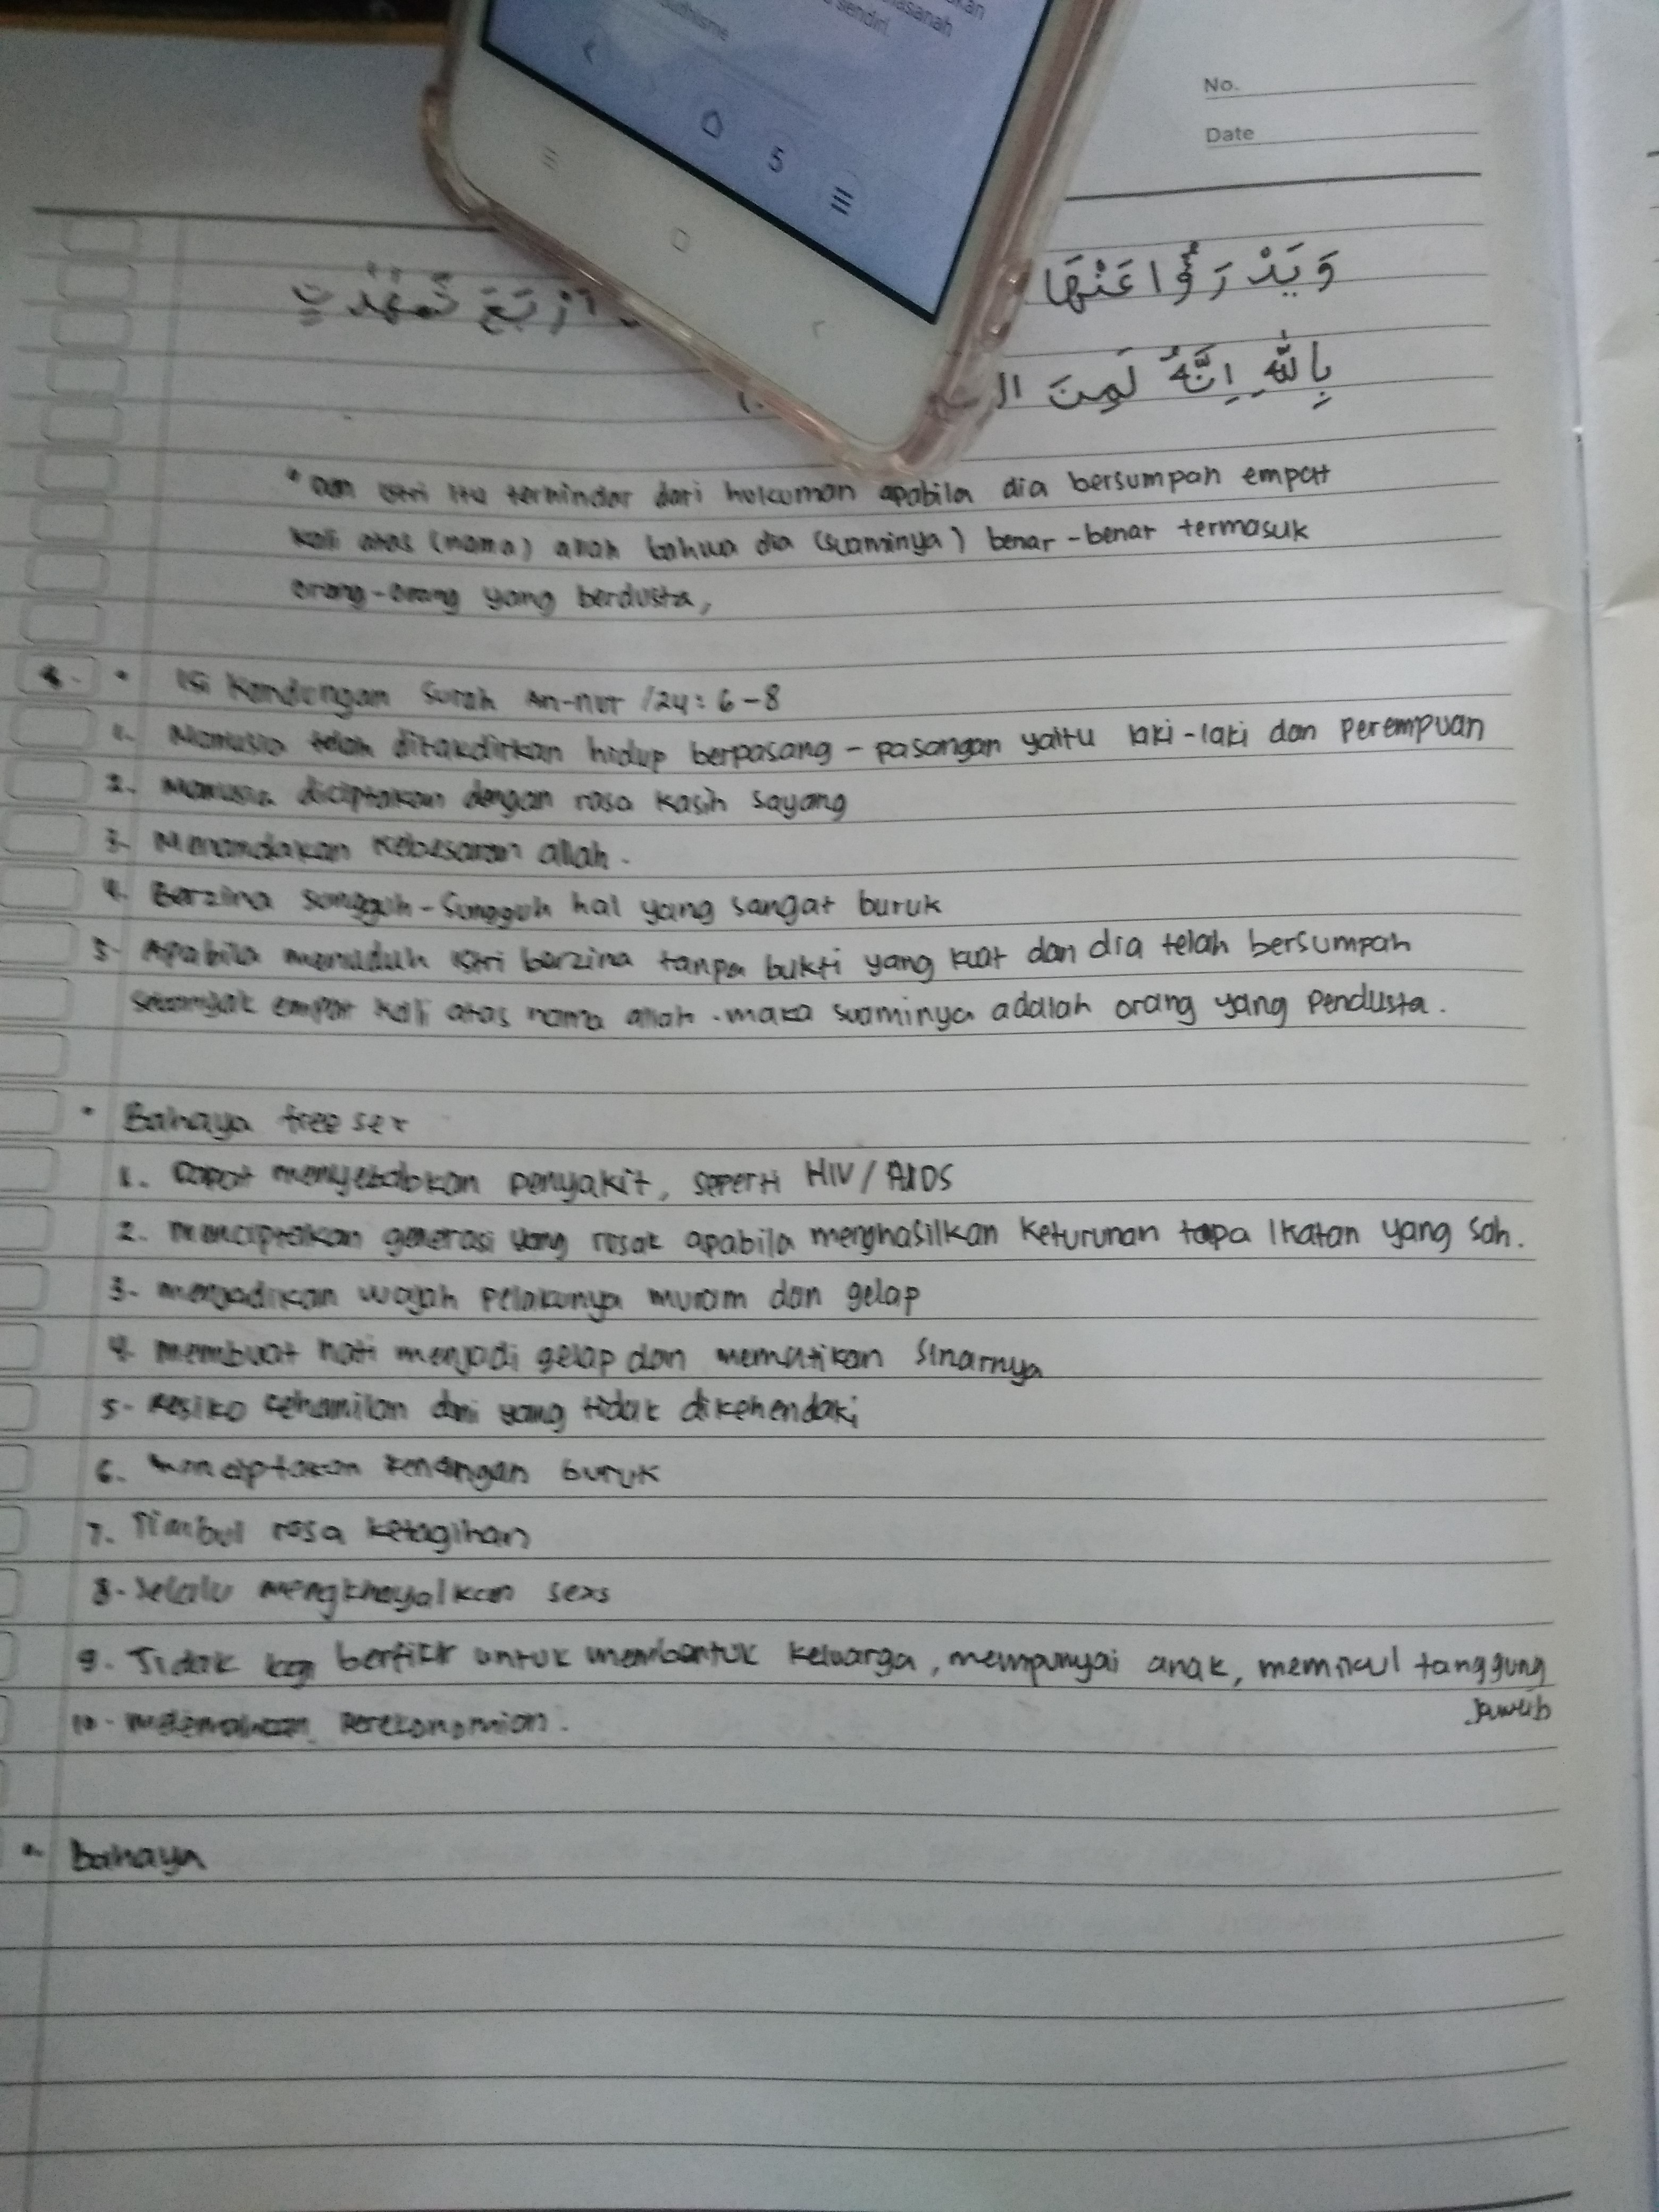 kan
asanah
sendiri
udhisme
5
No.
Date
وَيَدْرَؤُا عَنْهَا اَرْبَعَ شَهٰدٰتٍ
بِاللّٰهِ اِنَّهُ لَمِنَ ال
" Dan istri itu terhindar dari hukuman apabila dia bersumpah empat
kali atas (nama) allah bahwa dia (suaminya) benar-benar termasuk
orang-orang yang berdusta,
• Isi Kandungan Surah An-nur /24: 6-8
1. Manusia telah ditakdirkan hidup berpasang-pasangan yaitu laki-laki dan Perempuan
2. Manusia diciptakan dengan rasa kasih sayang
3. Menandakan kebesaran allah.
4. Berzina sungguh-sungguh hal yang sangat buruk
5. Apabila menuduh istri berzina tanpa bukti yang kuat dan dia telah bersumpah
sebanyak empat kali atas nama allah. maka suaminya adalah orang yang Pendusta.
• Bahaya free sex
1. Dapat menyebabkan penyakit, seperti HIV/AIDS
2. menciptakan generasi yang rusak apabila menghasilkan keturunan tapa Ikatan yang sah.
3. menjadikan wajah pelakunya muram dan gelap
4. membuat hati menjadi gelap dan mematikan sinarnya
5. Resiko kehamilan dini yang tidak dikehendaki
6. menciptakan kenangan buruk
7. Timbul rasa ketagihan
8. Selalu mengkhayalkan sexs
9. Tidak berfikir untuk membentuk keluarga, mempunyai anak, memikul tanggung
jawab
10. melemahkan perekonomian.
• Bahaya